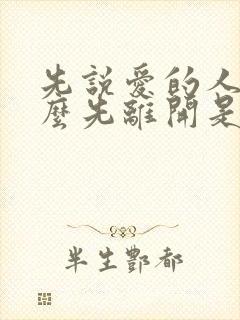 先說愛的人
麼先離開是
半生酆都